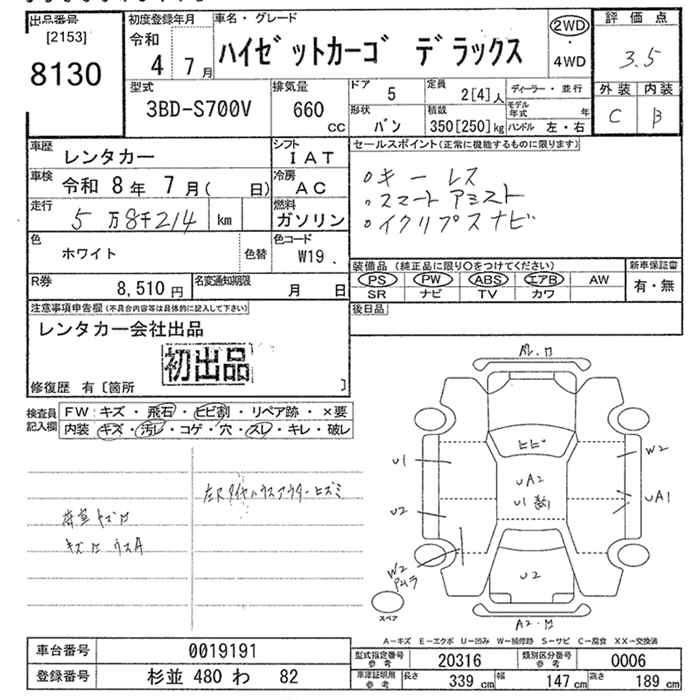 出品番号
[2153]
8130
初度登録年月
令和
4 7月
車名・グレード
ハイゼットカーゴ デラックス
2WD
・
4WD
評価点
3.5
外装 内装
C B
型式
3BD-S700V
排気量
660
CC
ドア
5
定員
2[4]人
形状
バン
積数
350[250]kg
ディーラー・並行
モデル年式 年
ハンドル 左・右
車歴
レンタカー
シフト
IAT
車検
令和 8年 7月( 日)
冷房
AC
走行
5万8千214 km
燃料
ガソリン
色
ホワイト
色替
色コード
W19
R券
8,510円
名変通知期限
月 日
セールスポイント(正常に機能するものに限ります)
○キーレス
○スマートアシスト
○イクリプスナビ
装備品(純正品に限り○をつけてください)
新車保証書
PS PW ABS エアB AW
SR ナビ TV カワ
有・無
後日品
注意事項申告欄(不具合内容等は具体的に記入して下さい)
レンタカー会社出品
初出品
修復歴 有〔箇所 〕
検査員
記入欄
FW:キズ・飛石・ヒビ割・リペア跡・×要
内装:キズ・汚レ・コゲ・穴・スレ・キレ・破レ
左Rタイヤハウスアウターヒズミ
ヒビ
U1
W2
UA2
UA1
U2
W2
U2
スペア
A-キズ E-エクボ U-凹み W-補修跡 S-サビ C-腐食 XX-交換済
車台番号
0019191
型式指定番号
参考
20316
類別区分番号
参考
0006
登録番号
杉並 480 わ 82
車庫証明用
参考
長さ 339cm 幅 147cm 高さ 189cm